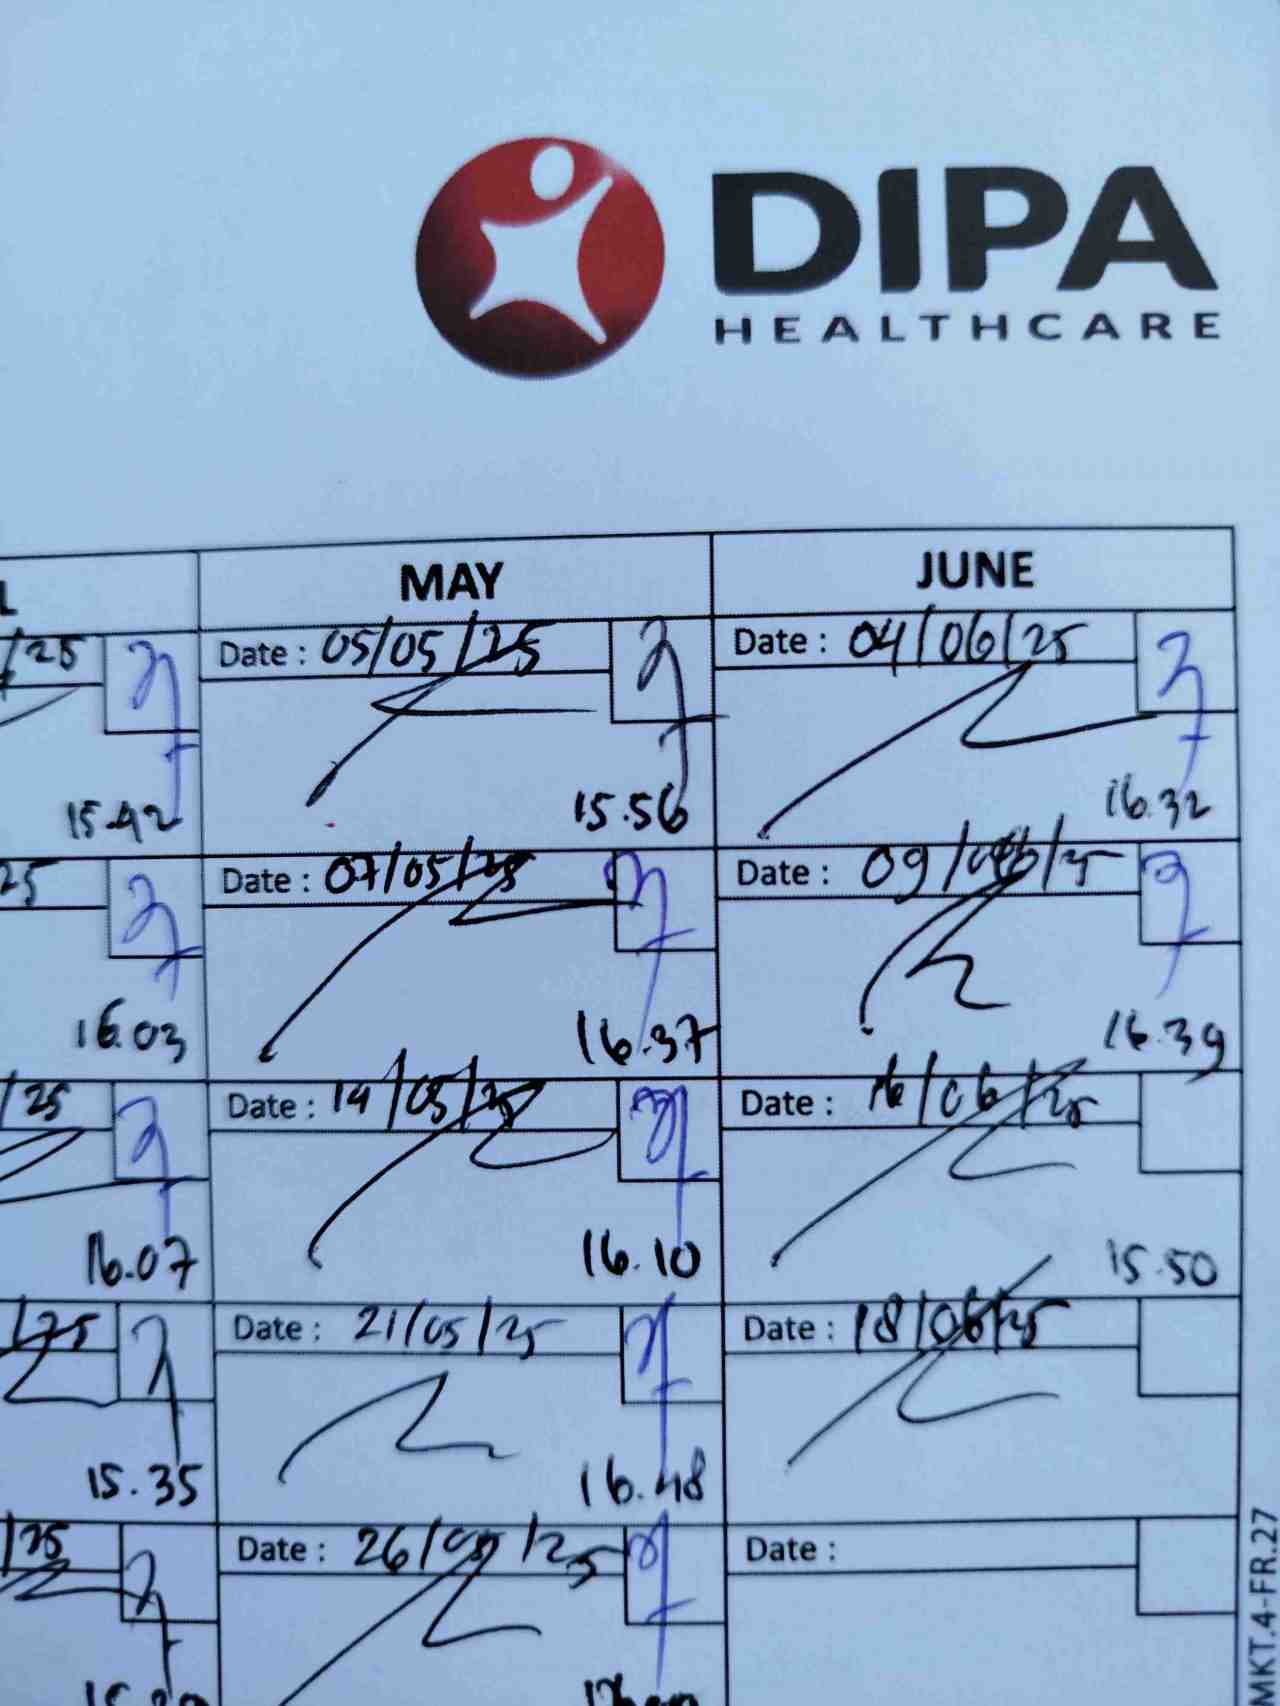 DIPA
HEALTHCARE
MAY JUNE
/25 Date : 05/05/25 Date : 04/06/25
15.42 15.56 16.32
25 Date : 07/05/25 Date : 09/06/25
16.03 16.37 16.39
/25 Date : 14/05/25 Date : 16/06/25
16.07 16.10 15.50
/25 Date : 21/05/25 Date : 18/06/25
15.35 16.48
/25 Date : 26/05/25 Date :
MKT.4-FR.27